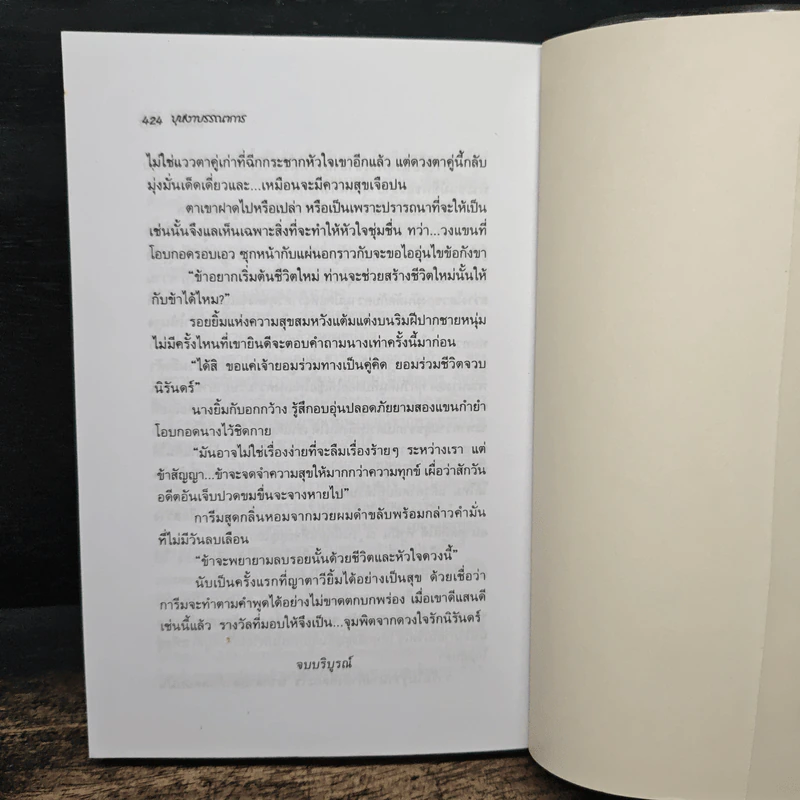 424 บุหงาบรรณาการ
ไม่ใช่แววตาคู่เก่าที่ฉีกกระชากหัวใจเขาอีกแล้ว แต่ดวงตาคู่นี้กลับ
มุ่งมั่นเด็ดเดี่ยวและ...เหมือนจะมีความสุขเจือปน
ตาเขาฝาดไปหรือเปล่า หรือเป็นเพราะปรารถนาที่จะให้เป็น
เช่นนั้นจึงแลเห็นเฉพาะสิ่งที่จะทำให้หัวใจชุ่มชื่น ทว่า...วงแขนที่
โอบกอดรอบเอว ซุกหน้ากับแผ่นอกราวกับจะขอไออุ่นไขข้อกังขา
“ข้าอยากเริ่มต้นชีวิตใหม่ ท่านจะช่วยสร้างชีวิตใหม่นั้นให้
กับข้าได้ไหม?”
รอยยิ้มแห่งความสุขสมหวังแต้มแต่งบนริมฝีปากชายหนุ่ม
ไม่มีครั้งไหนที่เขายินดีจะตอบคำถามนางเท่าครั้งนี้มาก่อน
“ได้สิ ขอแค่เจ้ายอมร่วมทางเป็นคู่คิด ยอมร่วมชีวิตจวบ
นิรันดร์”
นางยิ้มกับอกกว้าง รู้สึกอบอุ่นปลอดภัยยามสองแขนกำยำ
โอบกอดนางไว้ชิดกาย
“มันอาจไม่ใช่เรื่องง่ายที่จะลืมเรื่องร้ายๆ ระหว่างเรา แต่
ข้าสัญญา...ข้าจะจดจำความสุขให้มากกว่าความทุกข์ เผื่อว่าสักวัน
อดีตอันเจ็บปวดขมขื่นจะจางหายไป”
การีมสูดกลิ่นหอมจากมวยผมดำขลับพร้อมกล่าวคำมั่น
ที่ไม่มีวันลบเลือน
“ข้าจะพยายามลบรอยนั้นด้วยชีวิตและหัวใจดวงนี้”
นับเป็นครั้งแรกที่ญาดาวียิ้มได้อย่างเป็นสุข ด้วยเชื่อว่า
การีมจะทำตามคำพูดได้อย่างไม่ขาดตกบกพร่อง เมื่อเขาดีแสนดี
เช่นนี้แล้ว รางวัลที่มอบให้จึงเป็น...จุมพิตจากดวงใจรักนิรันดร์
จบบริบูรณ์